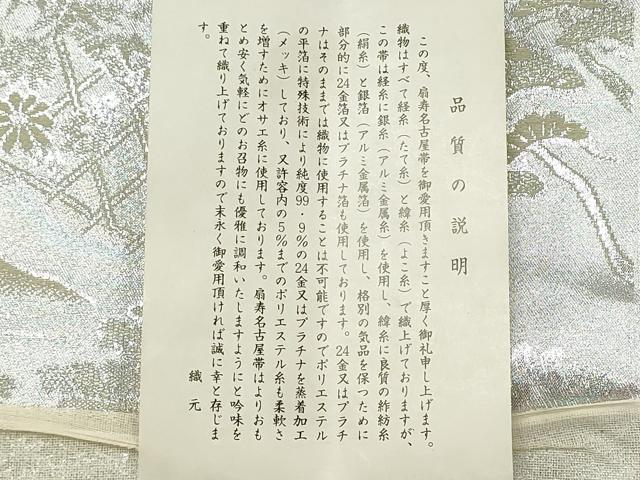 品質の説明
この度、扇寿名古屋帯を御愛用頂きますこと厚く御礼申し上げます。
織物はすべて経糸（たて糸）と緯糸（よこ糸）で織上げておりますが、
この帯は経糸に銀糸（アルミ金属糸）を使用し、緯糸に良質の紬紡糸
（絹糸）と銀箔（アルミ金属箔）を使用し、格別の気品を保つために
部分的に24金箔又はプラチナ箔も使用しております。24金又はプラチ
ナはそのままでは織物に使用することは不可能ですのでポリエステル
の平箔に特殊技術により純度99・9％の24金又はプラチナを蒸着加工
（メッキ）しており、又許容内の5％までのポリエステル糸も柔軟さ
を増すためにオサエ糸に使用しております。扇寿名古屋帯はよりおも
とめ安く気軽にどのお召物にも優雅に調和いたしますようにと吟味を
重ねて織り上げておりますので末永く御愛用頂ければ誠に幸と存じま
す。
織元